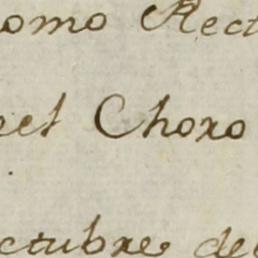 como Rect
del Choro
ctubre de